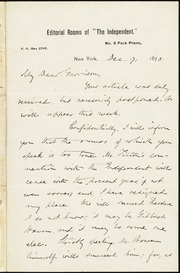 Editorial Rooms of "The Independent."
No. 3 Park Place,
P. O. Box 2787.
New York, Dec. 7, 1870.
My Dear Garrison,
Your article was duly
received, but necessarily postponed. It
will appear this week.
Confidentially, I will inform
you that the course of which you
speak is too true. Mr. Tilton's con-
nection with the Independent will
cease with the present year if not
even sooner, and I have resigned
my place. Who will succeed Theodore
I do not know; it may be Gilbert
Haven and it may be some one
else. Strictly speaking, Mr. Bowen
himself will succeed him; for, as